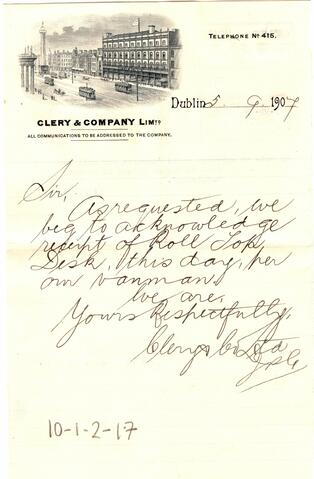 TELEPHONE Nº 415.
Dublin 5 9 1907
CLERY & COMPANY LIMTD
ALL COMMUNICATIONS TO BE ADDRESSED TO THE COMPANY.
Sir,
As requested, we
beg to acknowledge
receipt of Roll Top
Desk, this day, per
our vanman.
We are,
Yours Respectfully,
Clery & Co Ltd
10-1-2-17